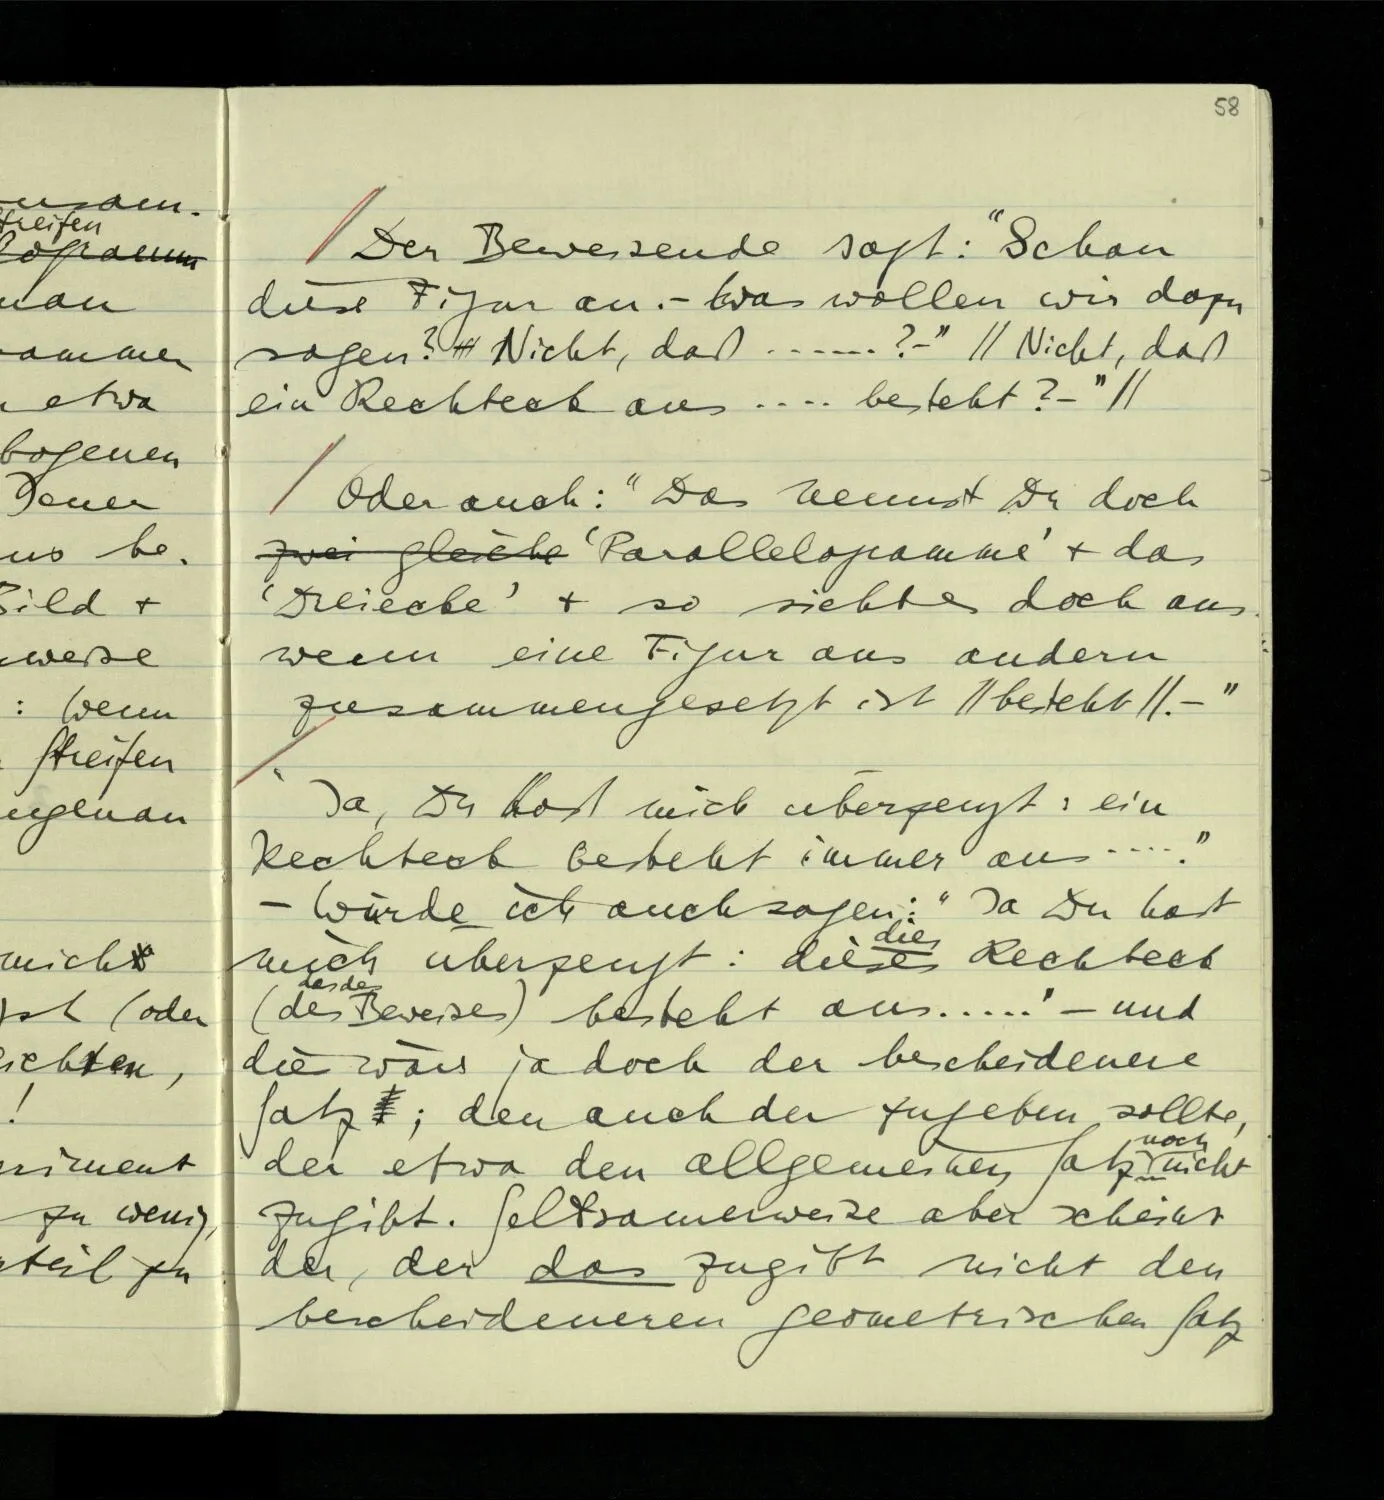 usam.
Streifen
logramm
man
sammen
etwa
bogenen
Jener
us be.
Bild +
weise
: wenn
Streifen
ugenan
nicht
(oder
ichten,
!
riment
zu wenig,
rteil zu
58
Der Beweisende sagt: "Schau
diese Figur an. – Was wollen wir dazu
sagen? Nicht, daß ......?–" // Nicht, daß
ein Rechteck aus .... besteht?–" //
Oder auch: "Das nennst Du doch
zwei gleiche 'Parallelogramme' + das
'Dreiecke' + so sieht es doch aus
wenn eine Figur aus andern
zusammengesetzt ist // besteht //.–"
"Ja, Du hast mich überzeugt: ein
Rechteck besteht immer aus ....."
– Würde ich auch sagen: "Ja Du hast
mich überzeugt: dieses Rechteck
dies
(des Beweises) besteht aus ....." – und
das des
die wärs ja doch der bescheidenere
Satz; den auch der zugeben sollte,
der etwa den allgemeinen Satz noch nicht
zugibt. Seltsamerweise aber scheint
der, der das zugibt nicht den
bescheideneren geometrischen Satz